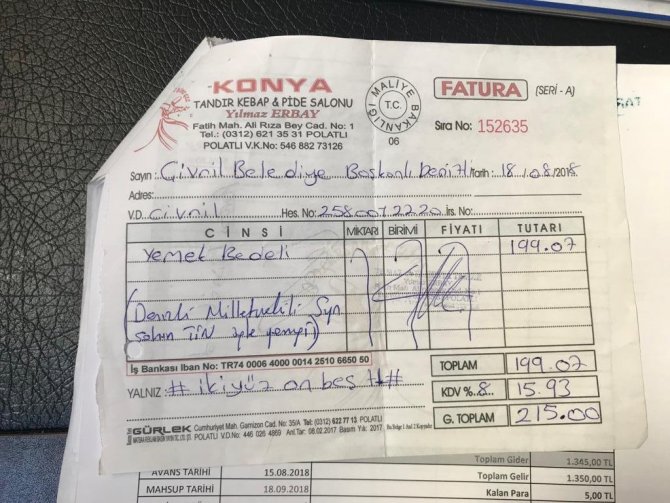 KONYA
TANDIR KEBAP & PİDE SALONU
Yılmaz ERBAY
Fatih Mah. Ali Rıza Bey Cad. No: 1
Tel.: (0312) 621 35 31 POLATLI
POLATLI V.K.No: 546 882 73126
MALİYE BAKANLIĞI
T.C.
06
FATURA (SERİ - A)
Sıra No: 152635
Sayın : Çivril Belediye Başkanlı Denizli Tarih : 18.08/2018
Adres:
V.D. Çivril Hes. No: 2580072220 İrs. No:
CİNSİ MİKTARI BİRİMİ FİYATI TUTARI
Yemek Bedeli 199.07
(Denizli Milletvekili Syn
Şahin TİN öğle yemeği)
İş Bankası Iban No: TR74 0006 4000 0014 2510 6650 50
TOPLAM 199.07
YALNIZ: # ikiyüz on beş TL #
KDV %.8 15.93
G. TOPLAM 215.00
GÜRLEK Cumhuriyet Mah. Garnizon Cad. No: 35/A Tel: (0312) 622 77 13 POLATLI
POLATLI V.D.No: 446 026 4869 Anl.Tar: 08.02.2017 Basım Yılı: 2017
Toplam Gider 1.345,00 TL
AVANS TARİHİ 15.08.2018 Toplam Gelir 1.350,00 TL
MAHSUP TARİHİ 18.09.2018 Kalan Para 5,00 TL